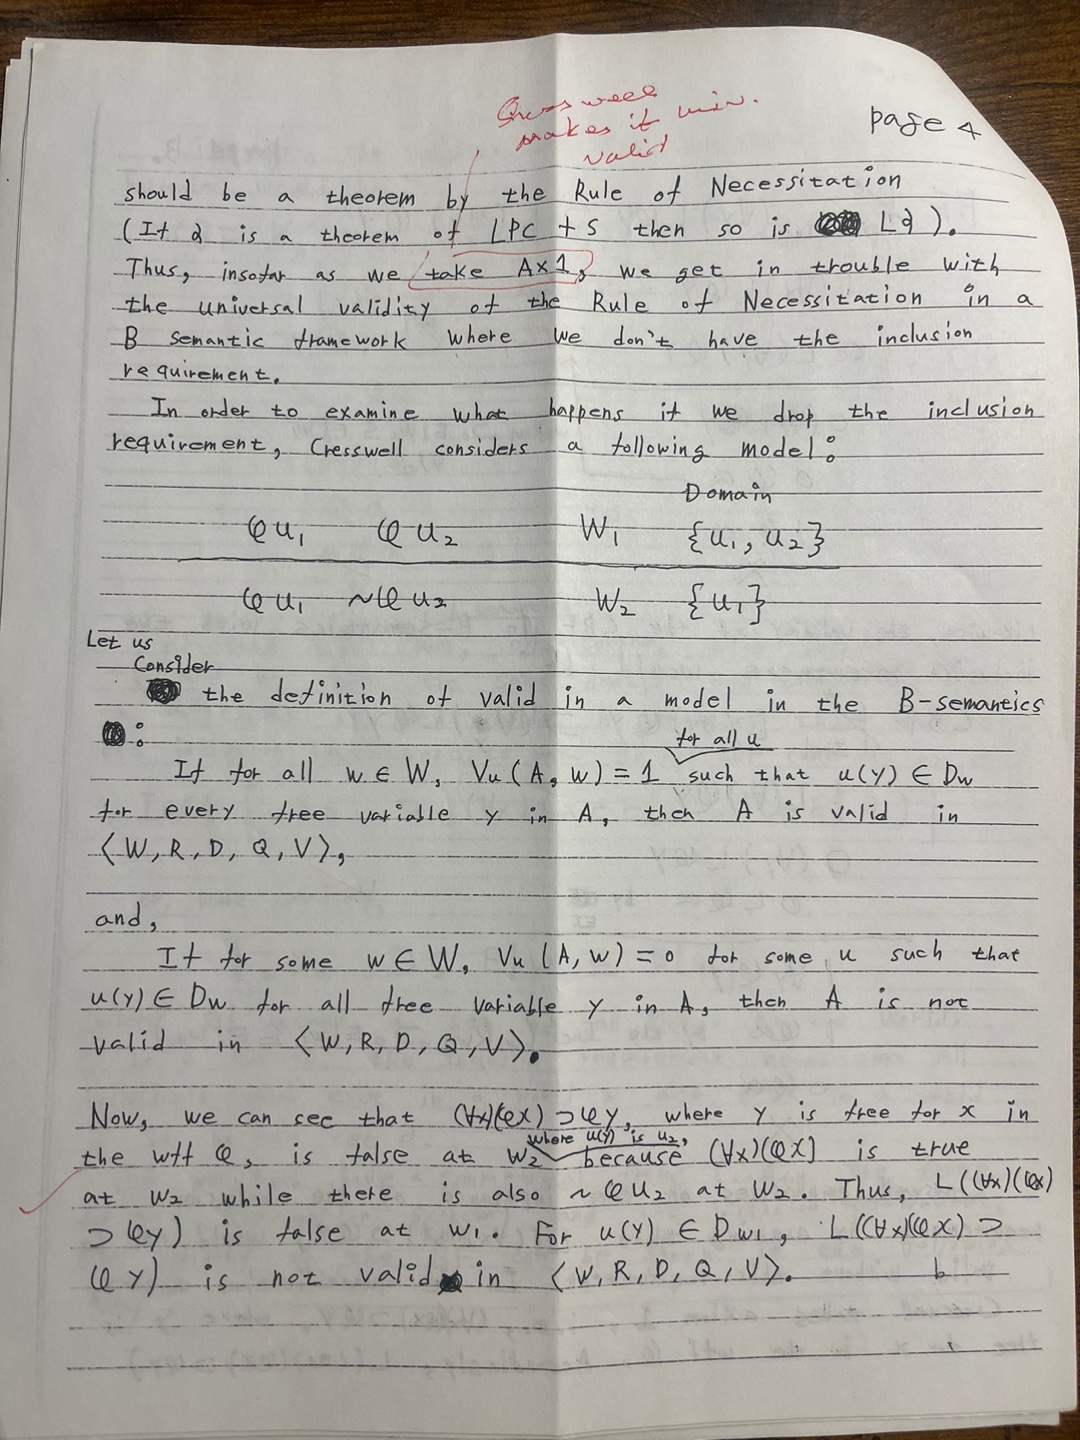 Cresswell
makes it univ.
valid
page 4
should be a theorem by the Rule of Necessitation
(If α is a theorem of LPC + S then so is Lα).
Thus, insofar as we take Ax1, we get in trouble with
the universal validity of the Rule of Necessitation in a
B semantic framework where we don't have the inclusion
requirement.
In order to examine what happens if we drop the inclusion
requirement, Cresswell considers a following model:
Domain
φu₁ φu₂ W₁ {u₁, u₂}
φu₁ ~φu₂ W₂ {u₁}
Let us
Consider
the definition of valid in a model in the B-semantics
:
for all u
If for all w ∈ W, Vu(A, w) = 1 such that u(y) ∈ Dw
for every free variable y in A, then A is valid in
⟨W, R, D, Q, V⟩,
and,
If for some w ∈ W, Vu(A, w) = 0 for some u such that
u(y) ∈ Dw for all free variable y in A, then A is not
valid in ⟨W, R, D, Q, V⟩.
Now, we can see that (∀x)(φx) ⊃ φy, where y is free for x in
where u(y) is u₂,
the wff φ, is false at W₂ because (∀x)(φx) is true
at W₂ while there is also ~φu₂ at W₂. Thus, L((∀x)(φx)
⊃ φy) is false at W₁. For u(y) ∈ Dw₁, L((∀x)(φx) ⊃
φy) is not valid in ⟨W, R, D, Q, V⟩.